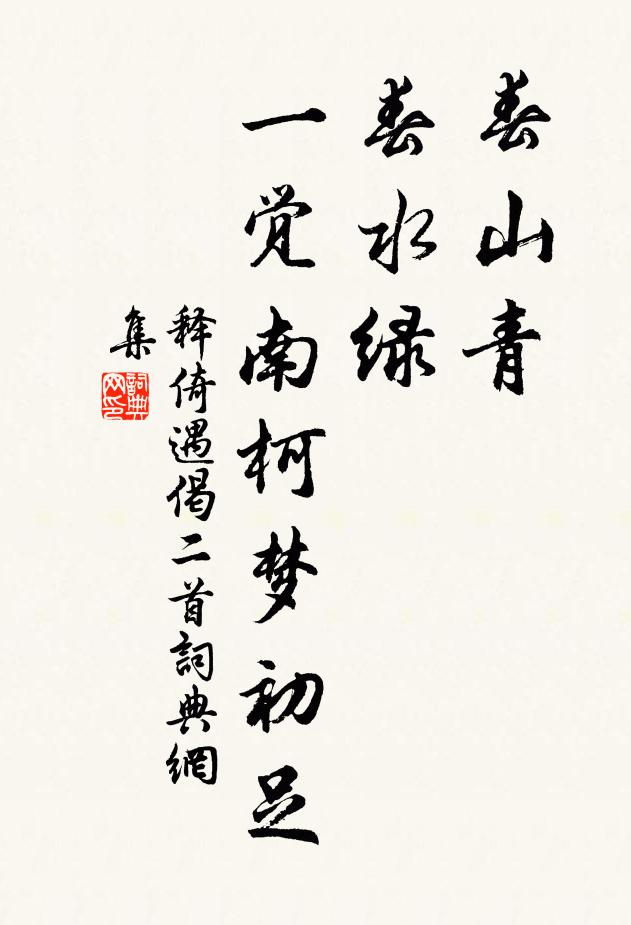 春山青
春水绿
一觉南柯梦初足
释倚遇偈二首詞典網
集
詞典
网印